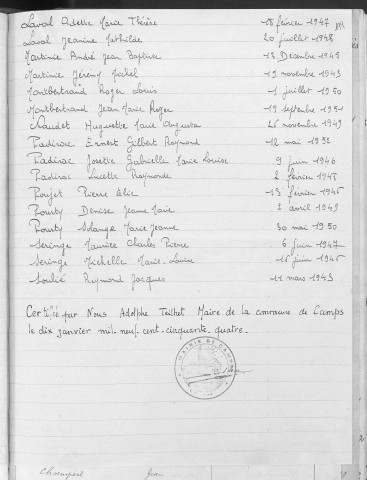 Laval Odette Marie Thérèse 18 février 1947
Laval Jeanine Mathilde 20 juillet 1948
Martinie André Jean Baptiste 13 Décembre 1945
Martinie Jérémy Michel 19 novembre 1943
Montbertrand Roger Louis 1 juillet 1950
Montbertrand Jean Marie Roger 19 septembre 1951
Naudet Huguette Marie Augusta 26 novembre 1949
Padirac Ernest Gilbert Raymond 12 mai 1952
Padirac Josette Gabrielle Marie Louise 9 juin 1946
Padirac Lucette Raymonde 2 février 1948
Poujet Pierre Elie 13 février 1946
Pourty Denise Jeanne Marie 2 avril 1949
Pourty Solange Marie Jeanne 30 mai 1950
Seringe Maurice Charles Pierre 6 juin 1947
Seringe Michelle Marie-Louise 16 juin 1946
Soulié Raymond Jacques 11 mars 1943
Certifié par Nous Adolphe Teilhet Maire de la commune de Camps
le dix janvier mil-neuf-cent-cinquante-quatre.
MAIRIE DE CAMPS
Jean